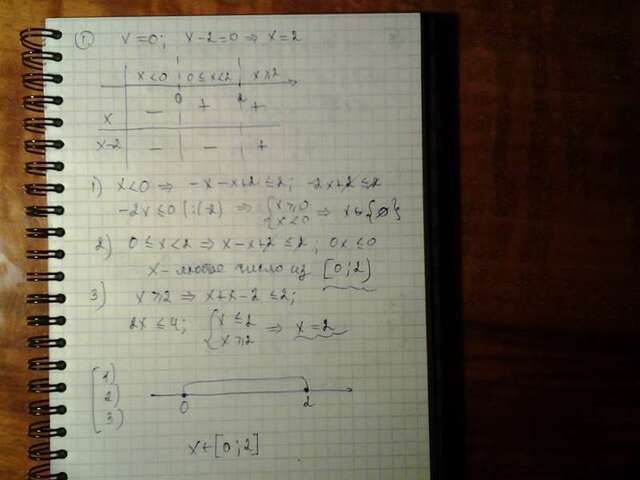 1) x=0; x-2=0 ⇒ x=2
x<0 | 0≤x<2 | x≥2
0 2
x − + +
x-2 − − +
1) x<0 ⇒ -x-x+2≤2; -2x+2≤2
-2x≤0 |:(-2) ⇒ {x≥0 {x<0 ⇒ x∈{∅}
2) 0≤x<2 ⇒ x-x+2≤2; 0x≤0
x- любое число из [0;2)
3) x≥2 ⇒ x+x-2≤2;
2x≤4; {x≤2 {x≥2 ⇒ x=2
[1)
2)
3)
0 2
x∈[0;2]